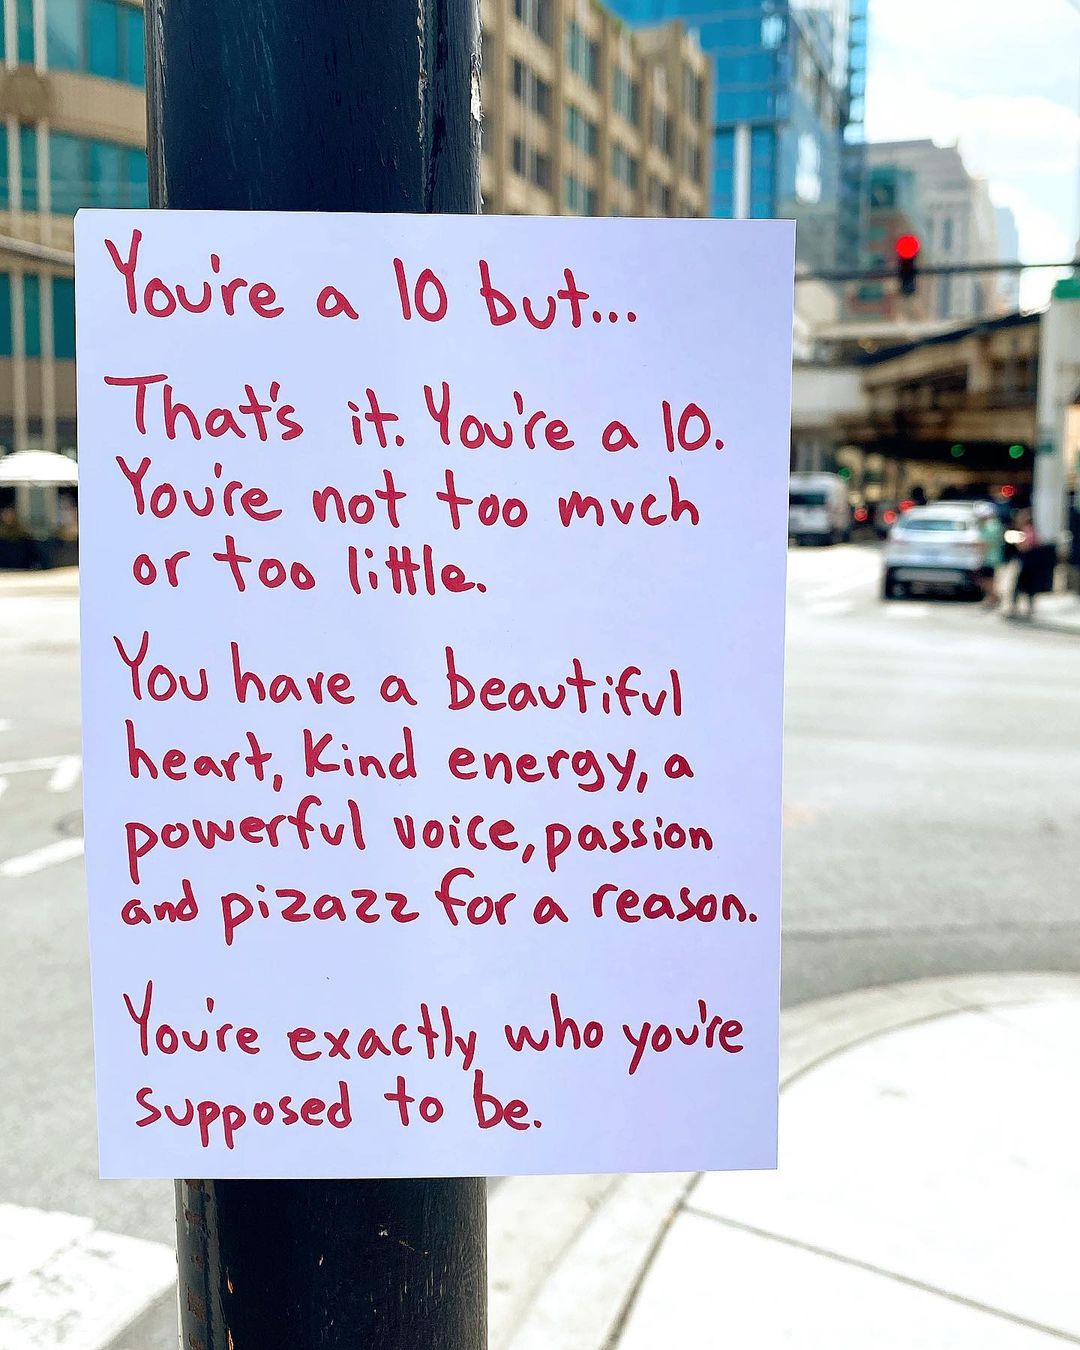 You're a 10 but...
That's it. You're a 10.
You're not too much
or too little.
You have a beautiful
heart, kind energy, a
powerful voice, passion
and pizazz for a reason.
You're exactly who you're
supposed to be.